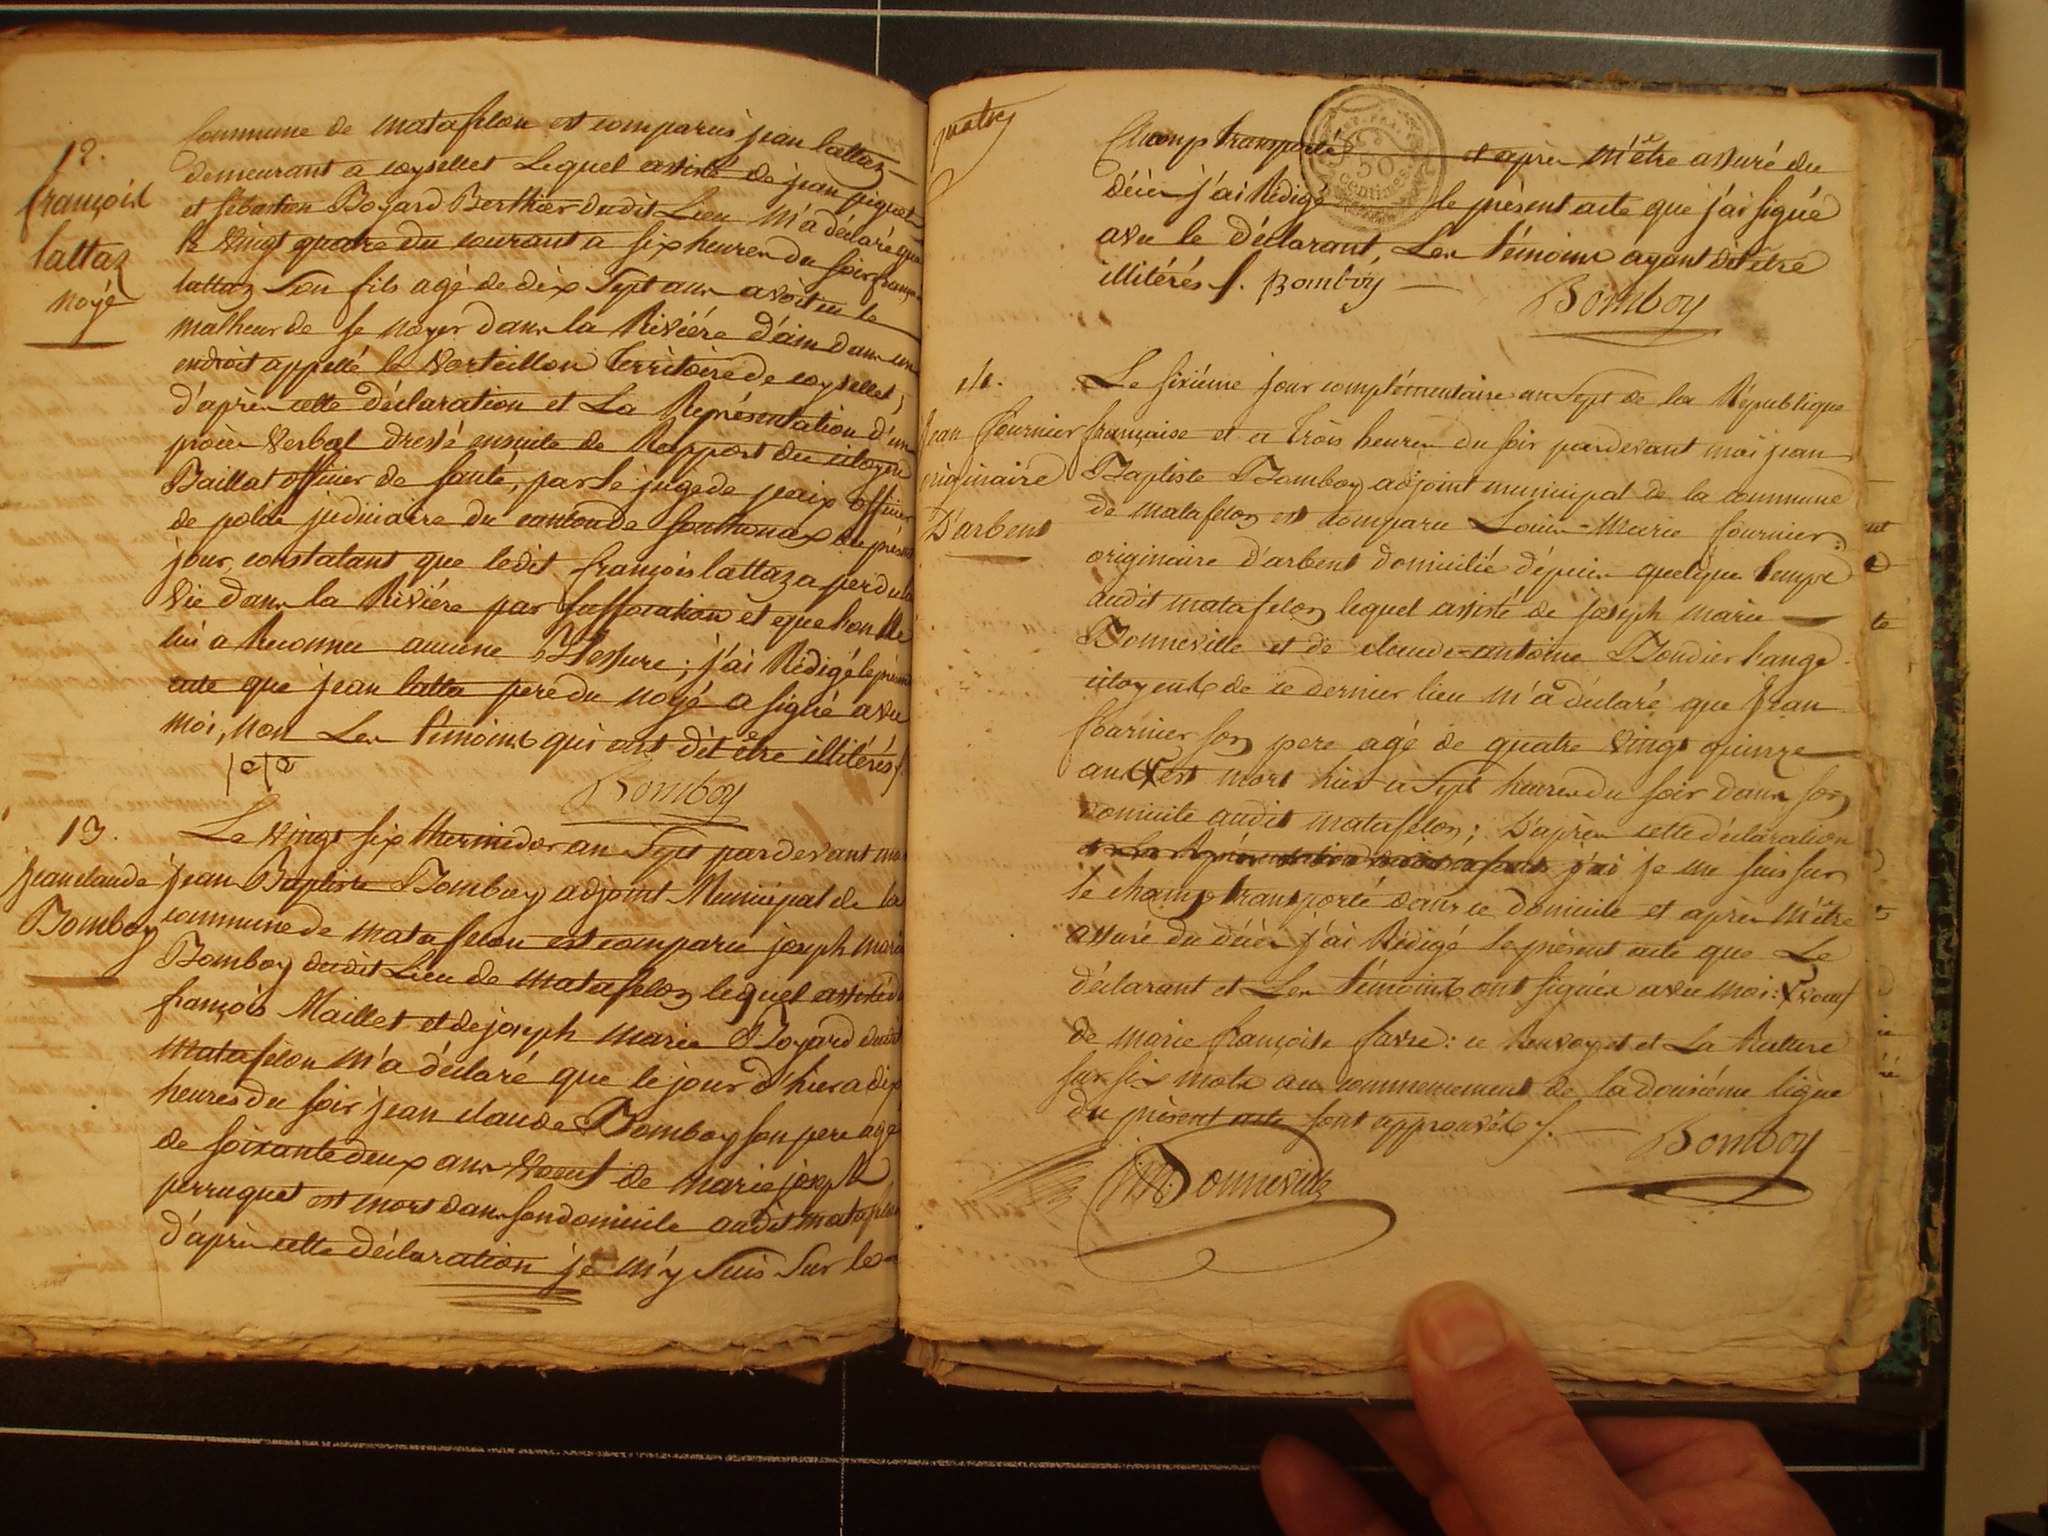 12.
françois
lattaz
noyé
Commune de matafelon est comparus jean lattaz
demeurant a coysellet Lequel assisté de jean piquet
et sébastien Boyard Berthier dudit Lieu m'a déclaré que
le vingt quatre du courant a six heures du soir françois
lattaz Son fils agé de dix Sept ans avoit eu le
malheur de se noyer dans la Rivière d'ain dans un
endroit appellé le Vorteillon Territoire de coysellet,
d'après cette déclaration et La Représentation d'un
procès Verbal dressé ensuite de Rapport du citoyen
Baillat officier de santé, par le juge de paix officier
de police judiciaire du canton de Sonthonax du présent
jour, constatant que ledit françois lattaz a perdu la
Vie dans la Rivière par suffocation et que l'on ne
lui a Reconnu aucune Blessure; j'ai Rédigé le présent
acte que jean latta pere du noyé a signé avec
moi, non Les témoins qui ont dit être illitérés
Bomboy
13.
jean claude
Bomboy
Le vingt six thermidor an Sept pardevant moi
jean Baptiste Bomboy adjoint Municipal de la
commune de matafelon est comparu joseph marie
Bomboy dudit Lieu de matafelon lequel assisté de
françois Maillet et de joseph marie Boyard dudit
matafelon m'a déclaré que le jour d'hier a dix
heures du soir jean claude Bomboy son pere agé
de soixante deux ans Voeuf de marie joseph
perruquet est mort dans son domicile audit matafelon
d'après cette déclaration je m'y Suis Sur le
quatre
50
centimes
Champ transporté et après m'être assuré du
décès j'ai Rédigé le présent acte que j'ai signé
avec le déclarant, Les témoins ayant dit être
illitérés /. Bomboy
Bomboy
14.
jean fournier
originaire
D'arbent
Le sixième jour complémentaire an Sept de la République
française et a Trois heures du soir pardevant moi jean
Baptiste Bomboy adjoint municipal de la commune
de matafelon est comparu Louis-Marie fournier
originaire d'arbent domicilié dépuis quelque temps
audit matafelon lequel assisté de joseph marie
Bonneville et de claude-antoine Bondier lange
citoyens de ce dernier lieu m'a déclaré que Jean
fournier son pere agé de quatre vingt quinze
ans est mort hier a Sept heures du soir dans son
domicile audit matafelon; D'après cette déclaration
j'ai je me suis sur
le champ transporté dans ce domicile et après m'être
assuré du décès j'ai Rédigé le présent acte que Le
déclarant et Les témoins ont signés avec moi: Voeuf
de marie françoise favre: ce Renvoy et et La Rature
sur six mots au commencement de la dousième ligne
du présent acte sont approuvés /.
Bomboy
J M Bonneville